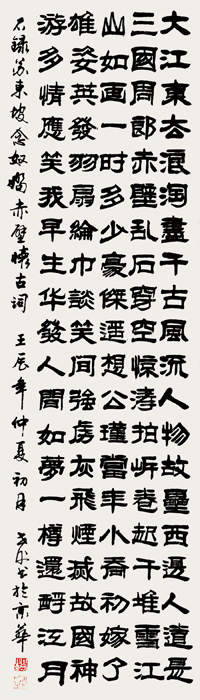 大江東去浪淘盡千古風流人物故壘西邊人道是
三國周郎赤壁乱石穿空惊濤拍岸卷起千堆雪江
山如画一时多少豪傑遥想公瑾當年小喬初嫁了
雄姿英發羽扇綸巾談笑间强虏灰飛煙滅故國神
游多情應笑我早生华發人間如夢一樽還酹江月
右録苏東坡念奴嬌赤壁懷古词 壬辰年仲夏初月 於京華